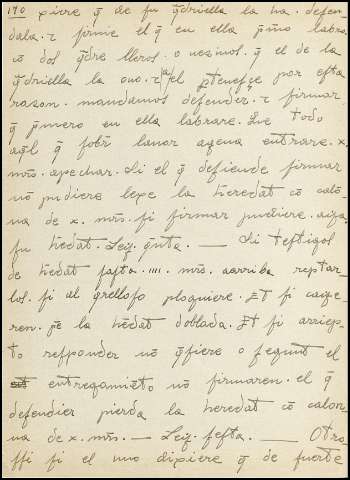 190 xiere q̃ de su q̃driella la ha. defen-
dala. τ firme el q̃ en ella p̃mo labra
cõ dos q̃dreͬlleros. o uezinos. q̃ el de la
q̃driella la ouo. τ a el ꝑtenesçe por esta
razon. mandamos defender. τ firmar
q̃ p̃mero en ella labrare. Lue todo
aq̃l q̃ sobr̃ lauor agena entrare. x.
mr̃s. apechar. Si el q̃ defiende firmar
nõ pudiere lexe la heredat cõ calõ-
na de x. mr̃s. si firmar pudiere. aiya
su hedat. Ley. q̃nta. — Si testigos
de hedat fasta. iiii. mr̃s. aarriba reptar-
los. si al q̃relloso ploguiere. Et si caye-
ren. p̃e la hedat doblada. Et si arriep-
to responder nõ q̃siere o segunt el
entregamiẽto nõ firmaren. el q̃
defendier pierda la heredat cõ calon-
na de x. mr̃s — Ley. sesta. — Otro
ssi si el uno dixiere q̃ de fuerte